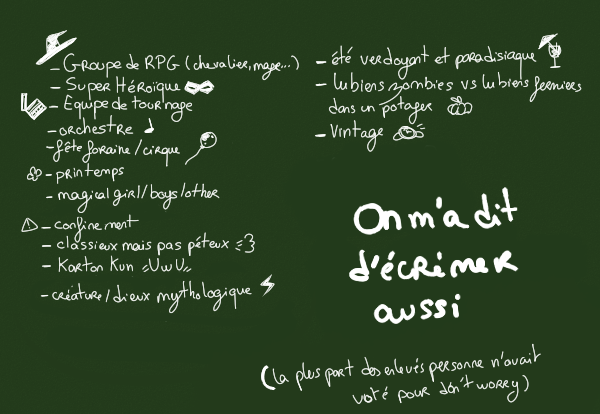 - Groupe de RPG (chevalier, mage...)
- Super Héroïque
- Equipe de tournage
- orchestre
- fête foraine / cirque
- printemps
- magical girl/boys/other
- confinement
- classieux mais pas péteux
- Karton Kun "UwU"
- créature/dieux mythologique
- été verdoyant et paradisiaque
- lubiens zombies vs lubiens fermiers
dans un potager
- Vintage
On m'a dit
d'écrémer
aussi
(la plus part des enlevés personne n'avait
voté pour dón't worry)